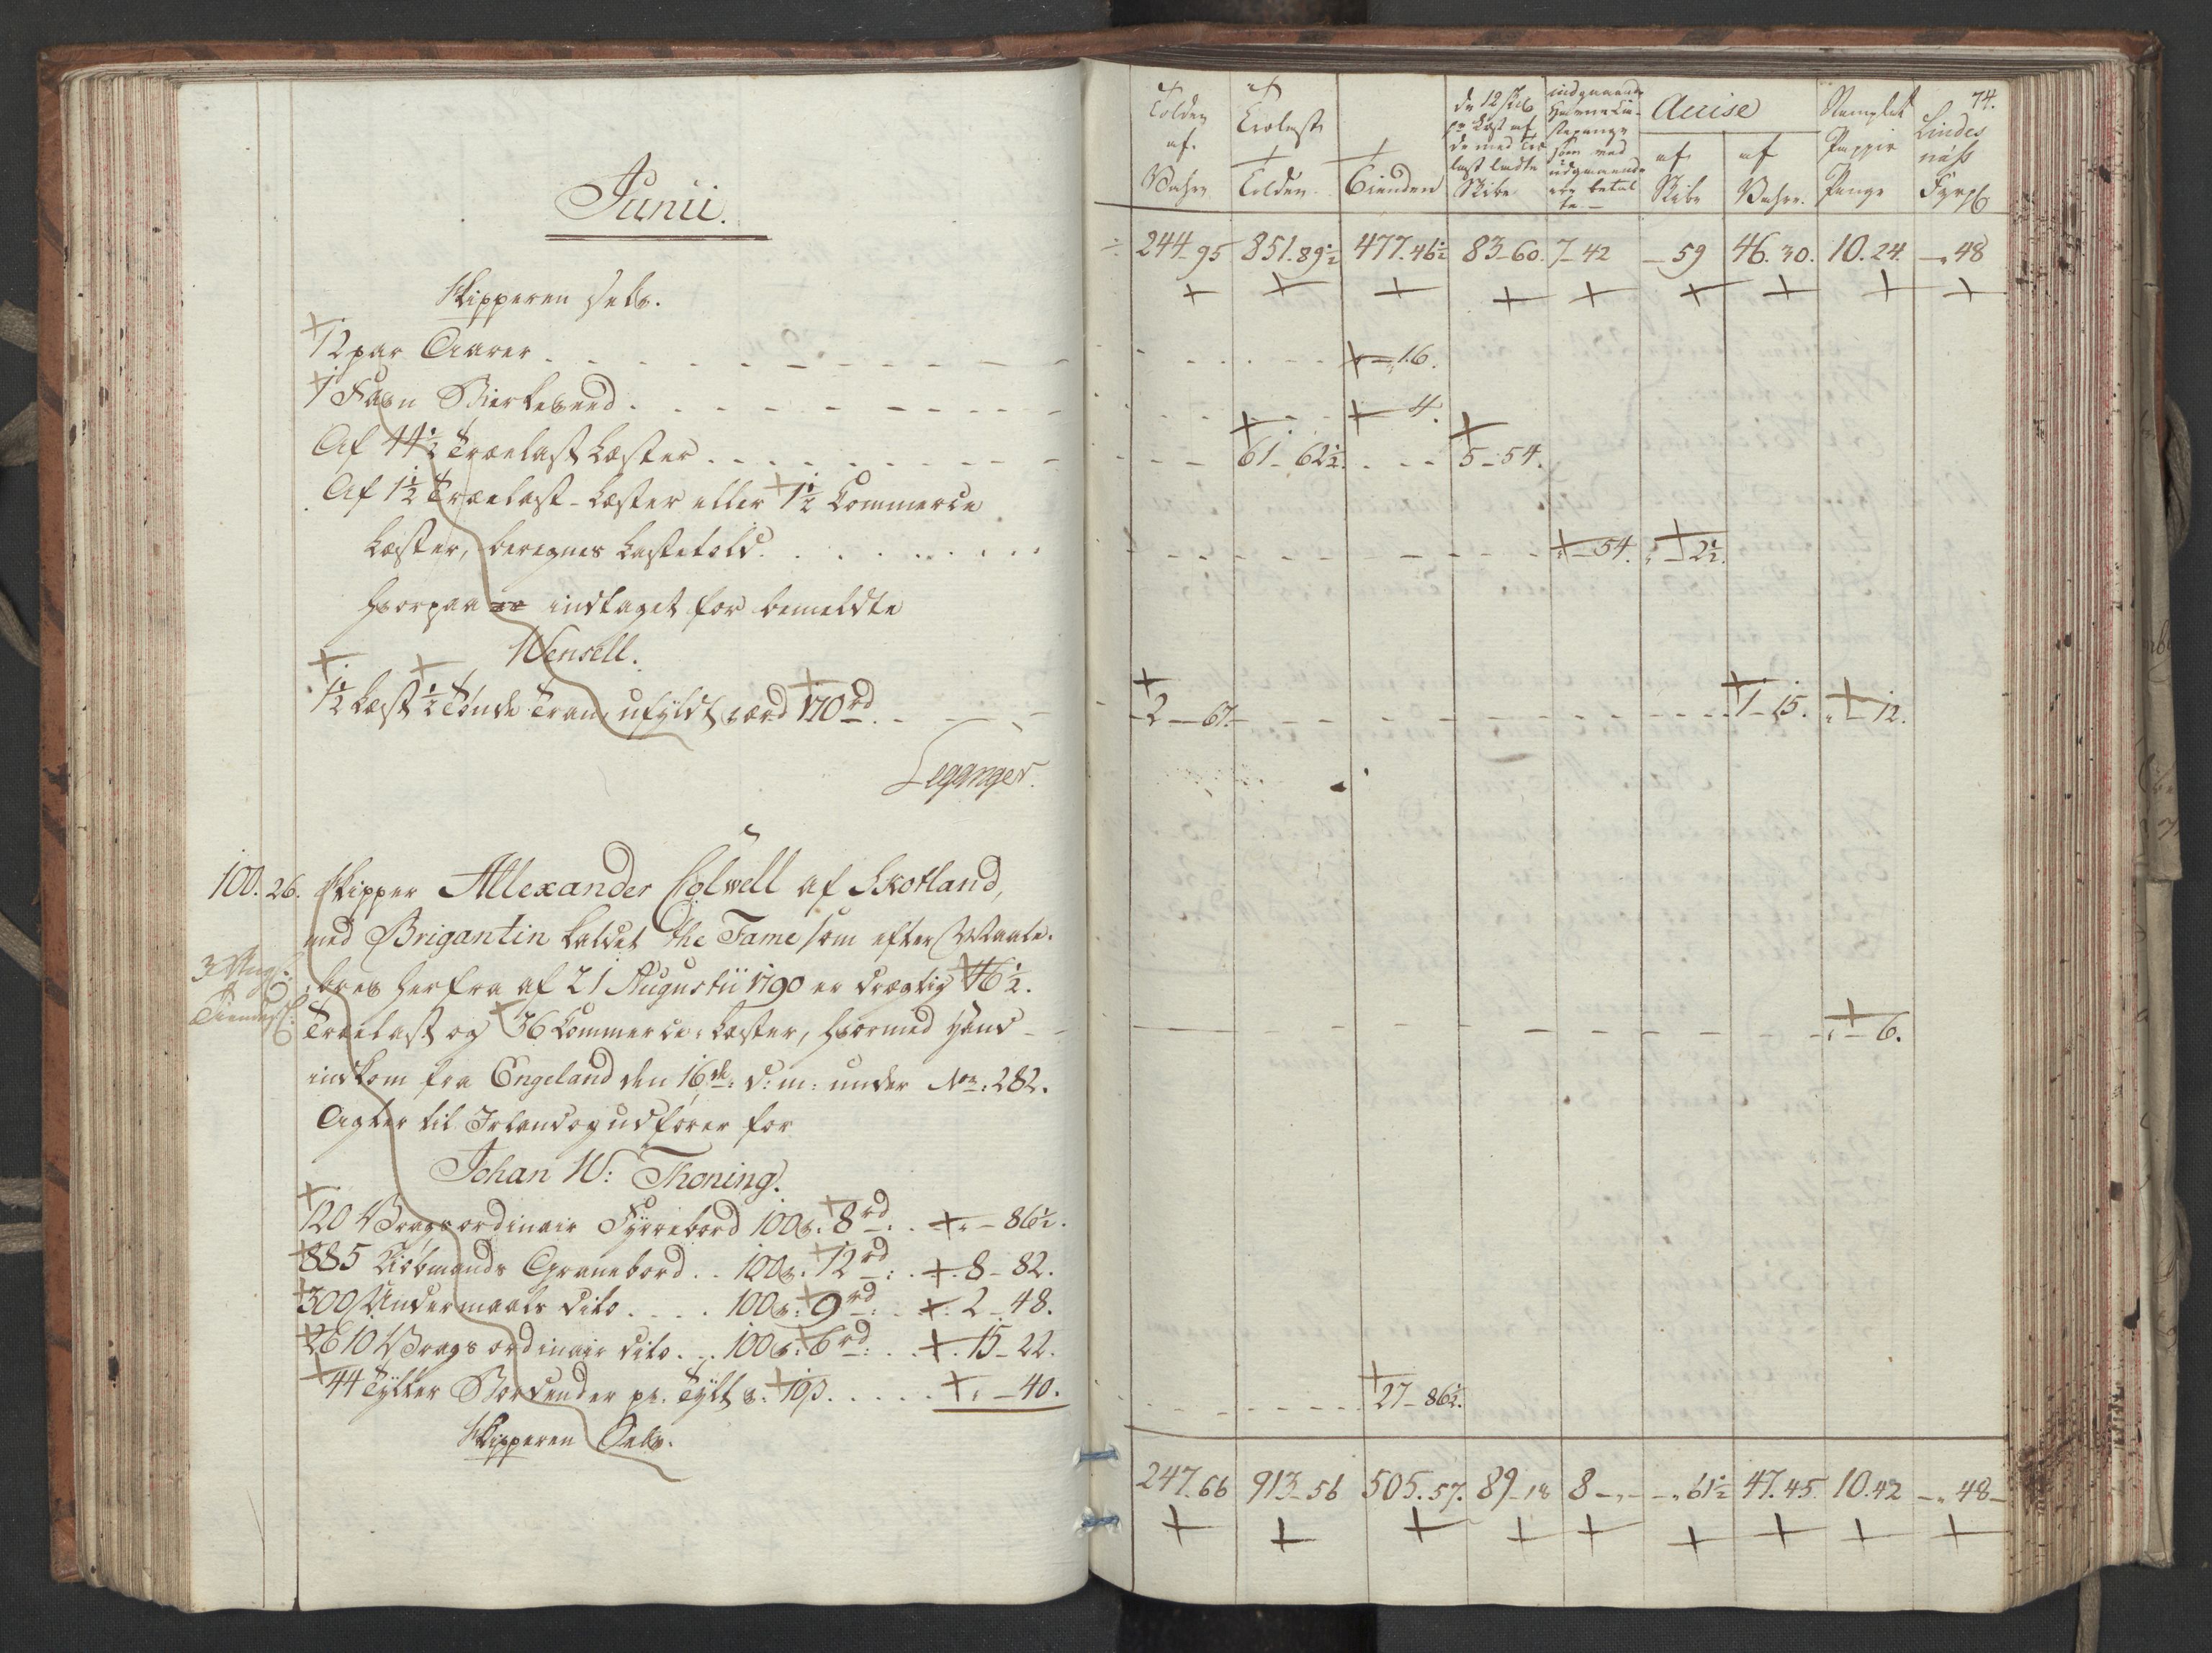 Junii.
Skipperen Selv.
12 par Aarer
1 Favn Birkeved
Af 44½ Trælast Læster
Af 1½ Trælast-Læster eller 1½ Commerce
Læster, beregnes Lastetold
hvorpaa indtaget for bemeldte
Wensell.
1½ Læst ½ Tønde Tran, ufyldt, værd 170 rd
Leganger.
100. 26. Skipper Allexander Colwell af Skotland,
med Brigantin kaldet The Fame som efter Maale-
brev herfra af 21 Augustii 1790 er drægtig 46½.
Trælast og 36 Commerce-Læster, hvormed hand
indkom fra Engeland den 16de d: m: under No: 282.
Agter til Irland og udfører for
Johan W: Thoning.
120 Vrags ordinair Fyrrebord 100 à 8 rd: „ - 86½.
885 Kiøbmands Granebord 100 à 12 rd: 8 - 82.
300 Undermaals dito 100 à 9 rd: 2 - 48.
2610 Vrags ordinair dito 100 à 6 rd: 15 - 22.
44 Tylter Bordender pr. Tylt à 10 s. „ - 40.
Skipperen Selv.
74.
Tolden af Vahre
Trælast Tolden
Tienden
de 12 s pr Læst af de med Trælast ladte Skibe
indgaaende som ved udgaaende ere betalte
Accise
af Skibe
af Vahre.
Stemplet Papiir Penge
Lindesnæss Fyrp
244-95 851.89½ 477.46½ 83-60. 7-42 - 59 46.30. 10.24. -„48
„ - 16.
4.
61-62½. 5-54.
„-54. „-2½.
2-67. 1-15. „-12.
„-6.
27-86½.
247.66 913-56 505.57. 89-18 8-„- -„61½ 47.45. 10.42 -„48-